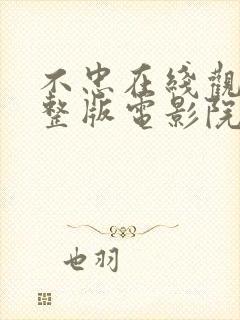 不忠在线觀
整版電影院
也羽